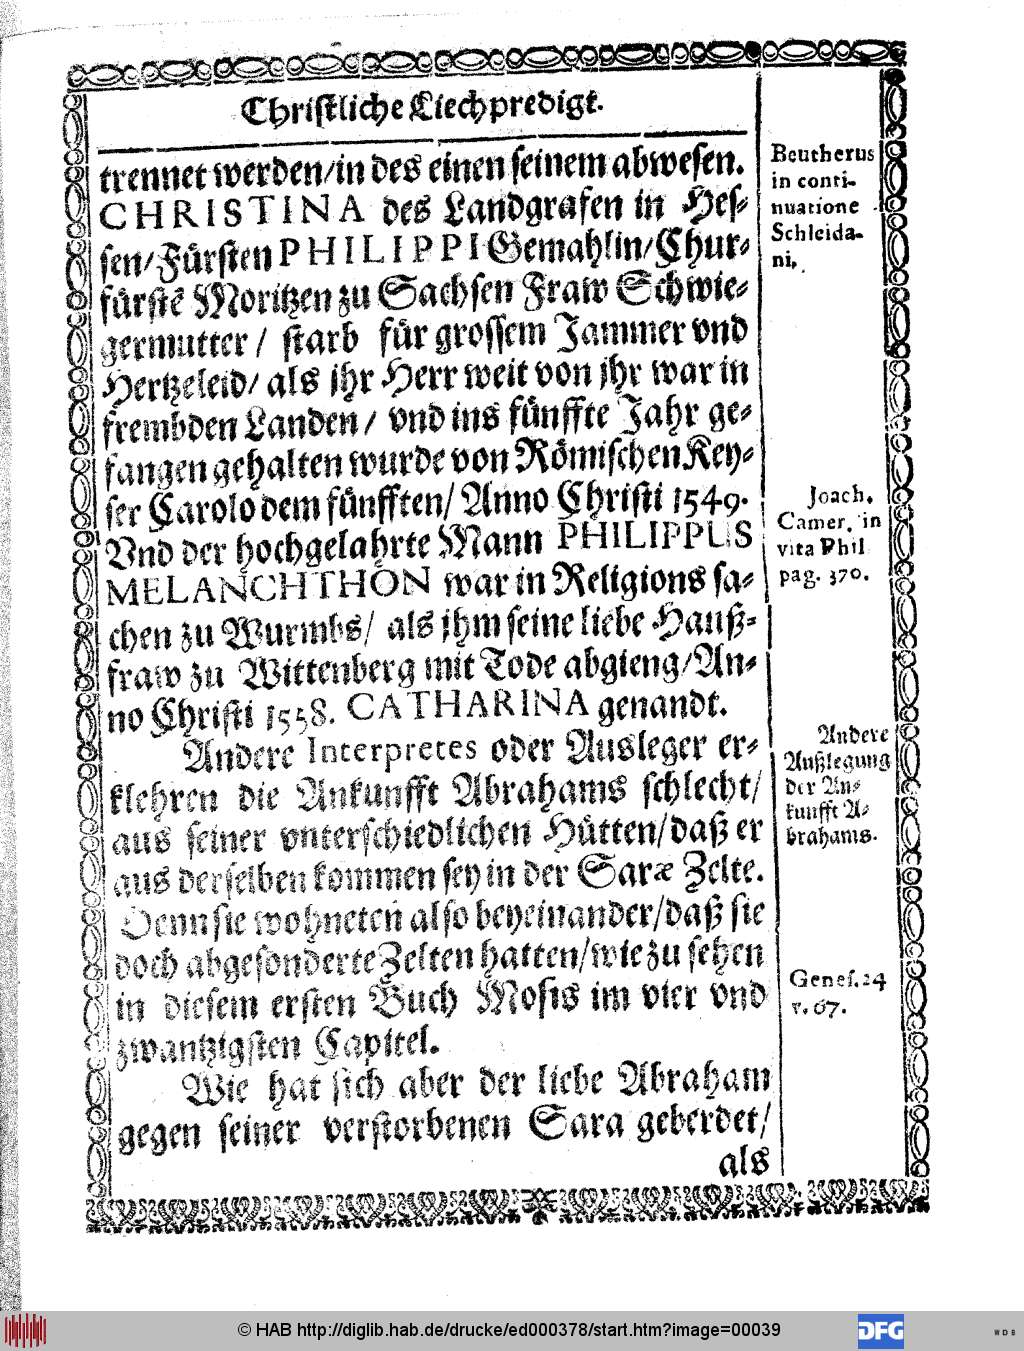 Christliche Liechpredigt.
trennet werden/in des einen seinem abwesen.
CHRISTINA des Landgrafen in Hes-
sen/Fürsten PHILIPPI Gemahlin/Chur-
fürstē Moritzen zu Sachsen Fraw Schwie-
germutter / starb für grossem Jammer vnd
Hertzeleid/ als jhr Herr weit von jhr war in
frembden Landen / vnd ins fünffte Jahr ge-
fangen gehalten wurde von Römischen Key-
ser Carolo dem fünfften/ Anno Christi 1549.
Vnd der hochgelahrte Mann PHILIPPUS
MELANCHTHON war in Religions sa-
chen zu Wurmbs/ als jhm seine liebe Hauß-
fraw zu Wittenberg mit Tode abgieng/An-
no Christi 1558. CATHARINA genandt.
Andere Interpretes oder Ausleger er-
klehren die Ankunfft Abrahams schlecht/
aus seiner vnterschiedlichen Hütten/daß er
aus derselben kommen sey in der Saræ Zelte.
Denn sie wohneten also beyeinander/daß sie
doch abgesonderte Zelten hatten/wie zu sehen
in diesem ersten Buch Mosis im vier vnd
zwantzigsten Capitel.
Wie hat sich aber der liebe Abraham
gegen seiner verstorbenen Sara geberdet/
als
Beutherus
in conti-
nuatione
Schleida-
ni.
Joach.
Camer. in
vita Phil
pag. 370.
Andere
Außlegung
der An-
kunfft A-
brahams.
Genes. 24
v. 67.
© HAB http://diglib.hab.de/drucke/ed000378/start.htm?image=00039
DFG
WDB